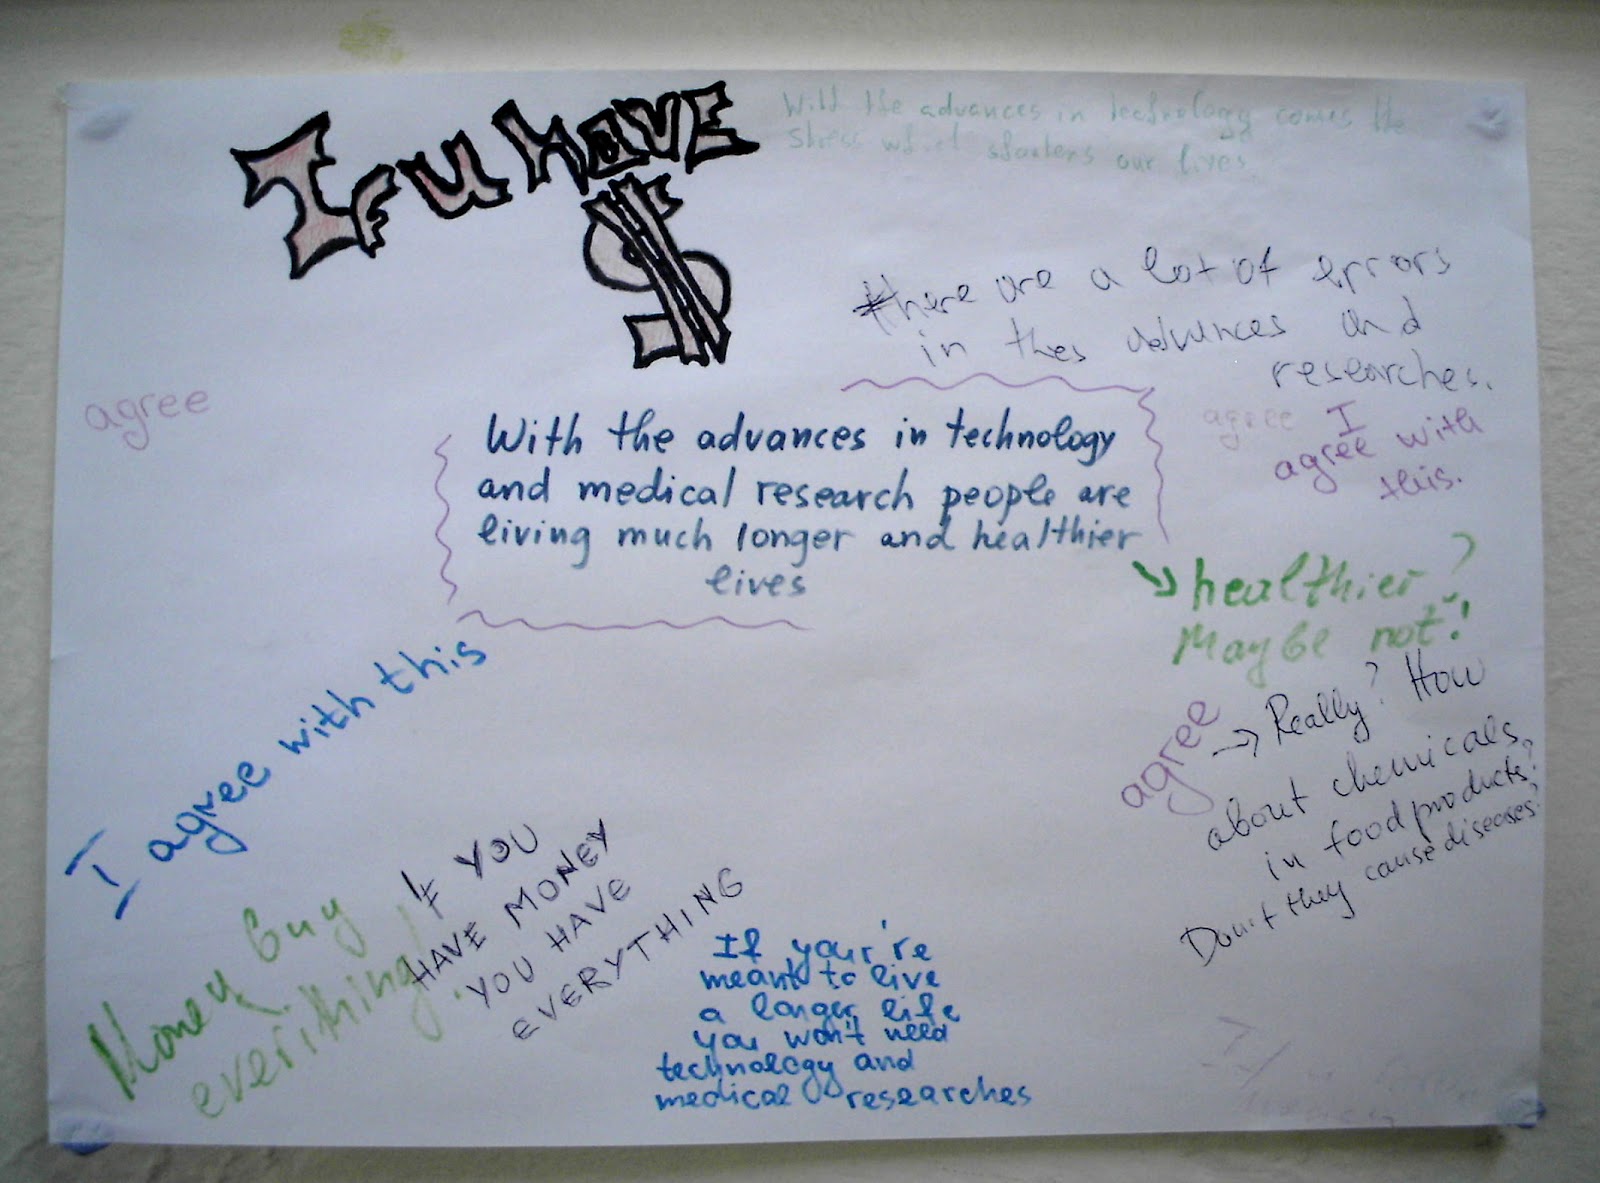 If u Have
$
With the advances in technology comes the
stress which shorters our lives.
there are a lot of errors
in thes advances and
researches.
agree
I
agree with
this.
agree
With the advances in technology
and medical research people are
living much longer and healthier
lives
→ healthier?
Maybe not!
agree
→ Really? How
about chemicals
in food products?
Don't they cause diseases?
I agree with this
Money buy
everithing!
If YOU
HAVE MONEY
YOU HAVE
EVERYTHING
If your're
meant to live
a longer life
you won't need
technology and
medical researches